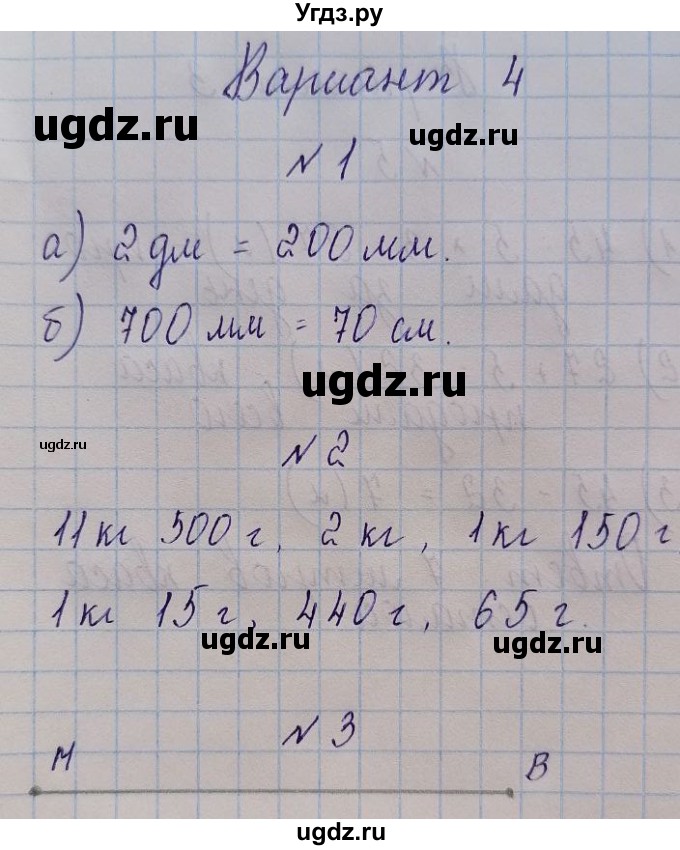 Угдз.ру
Вариант 4
ugdz.ru
ugdz.ru
№ 1
а) 2 дм = 200 мм.
б) 700 мм = 70 см.
ugdz.ru
ugdz.ru
№ 2
11 кг 500 г, 2 кг, 1 кг 150 г
1 кг 15 г, 440 г, 65 г.
ugdz.ru
ugdz.ru
№ 3
М В
ugdz.ru